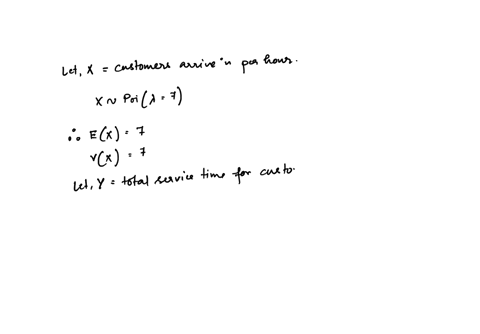 Let, X = customers arrive in per hour.
X ~ Poi(λ = 7)
∴ E(X) = 7
V(X) = 7
Let, Y = total service time for custo.